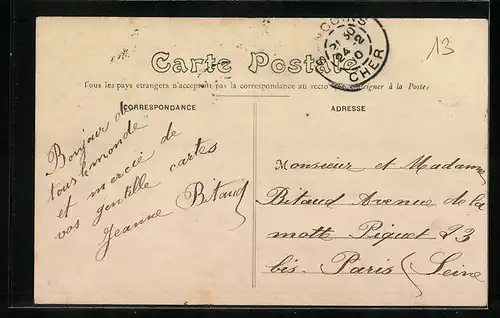 SANCOINS
21 30
24 -2
10
CHER
13
Carte Postale
Tous les pays étrangers n'acceptent pas la correspondance au recto (se renseigner à la Poste)
CORRESPONDANCE
ADRESSE
Bonjour a
tous le monde
et mercie de
vos gentille cartes
Jeanne Bitaud
Monsieur et Madame
Bitaud Avenue de la
motte Piquet 23
bis. Paris (Seine